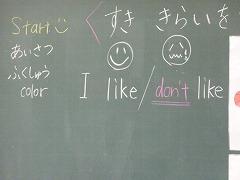 Start
あいさつ
ふくしゅう
color
<すき きらいを
I like/don't like